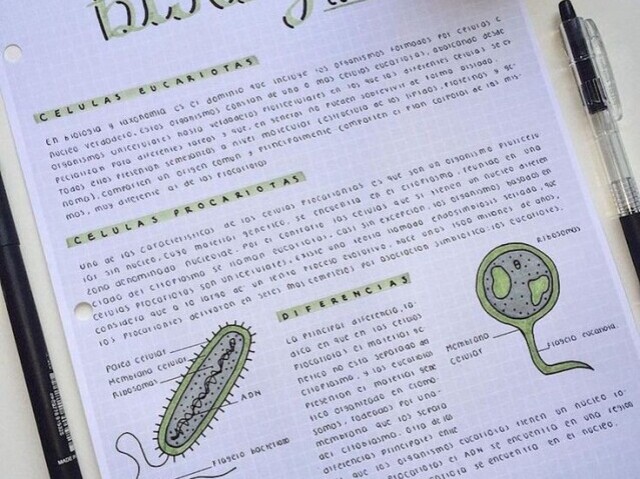 CELULAS EUCARIOTAS
En biología y taxonomía es el dominio que incluye los organismos formados por células c
núcleo verdadero. Estos organismos constan de una o mas células eucariotas, abarcando desde
organismos unicelulares hasta verdaderos pluricelulares en los que las diferentes células se es
pecializan para diferentes tareas y que, en general no pueden sobrevivir de forma aislada.
Todos ellos presentan semejanzas a nivel molecular (estructura de los lípidos, proteínas y ge
noma), comparten un origen común y principalmente comparten el plan corporal de los mis
mos, muy diferente al de los procariotas
CELULAS PROCARIOTAS
una de las características de las células procariontas es que son un organismo
sin núcleo, cuyo material genético, se encuentra en el citoplasma, reunido en una
zona denominado nucleoide. Por el contrario las células que si tienen un núcleo diferen
ciado del citoplasma se llaman eucariotas. Casi sin excepción, los organismos basados en
células procariotas son unicelulares. Existe una teoría llamada endosimbiosis seriada, que
considera que a lo largo de un lento proceso evolutivo, hace unos 1500 millones de años,
los procariontes derivaron en seres mas complejos por asociación simbiotica: los eucariotes.
DIFERENCIAS
La principal diferencia, ra
dica en que en las células
procariotas el material ge
netico no esta separado del
citoplasma, y las eucariotas
presentan el material gene
tico organizado en cromo
somas, rodeados por una
membrana que lo separa
del citoplasma. Otra de las
diferencias principales entre
que los organismos eucariotas tienen un núcleo
procariotas el ADN se encuentra en una region
se encuentra en el núcleo.
Pared celular
Membrana celular
Ribosomas
ADN
Flagelo bacteriano
Ribosomas
Membrana
celular
Flagelo eucariota